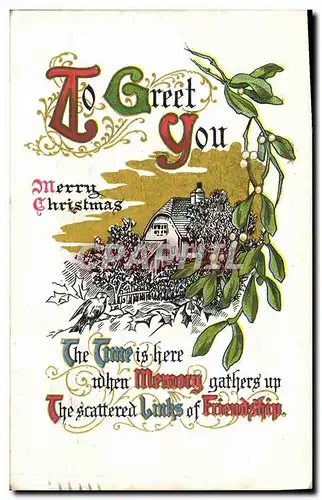 To Greet
You
Merry
Christmas
The Time is here
when Memory gathers up
The scattered Links of Friendship.